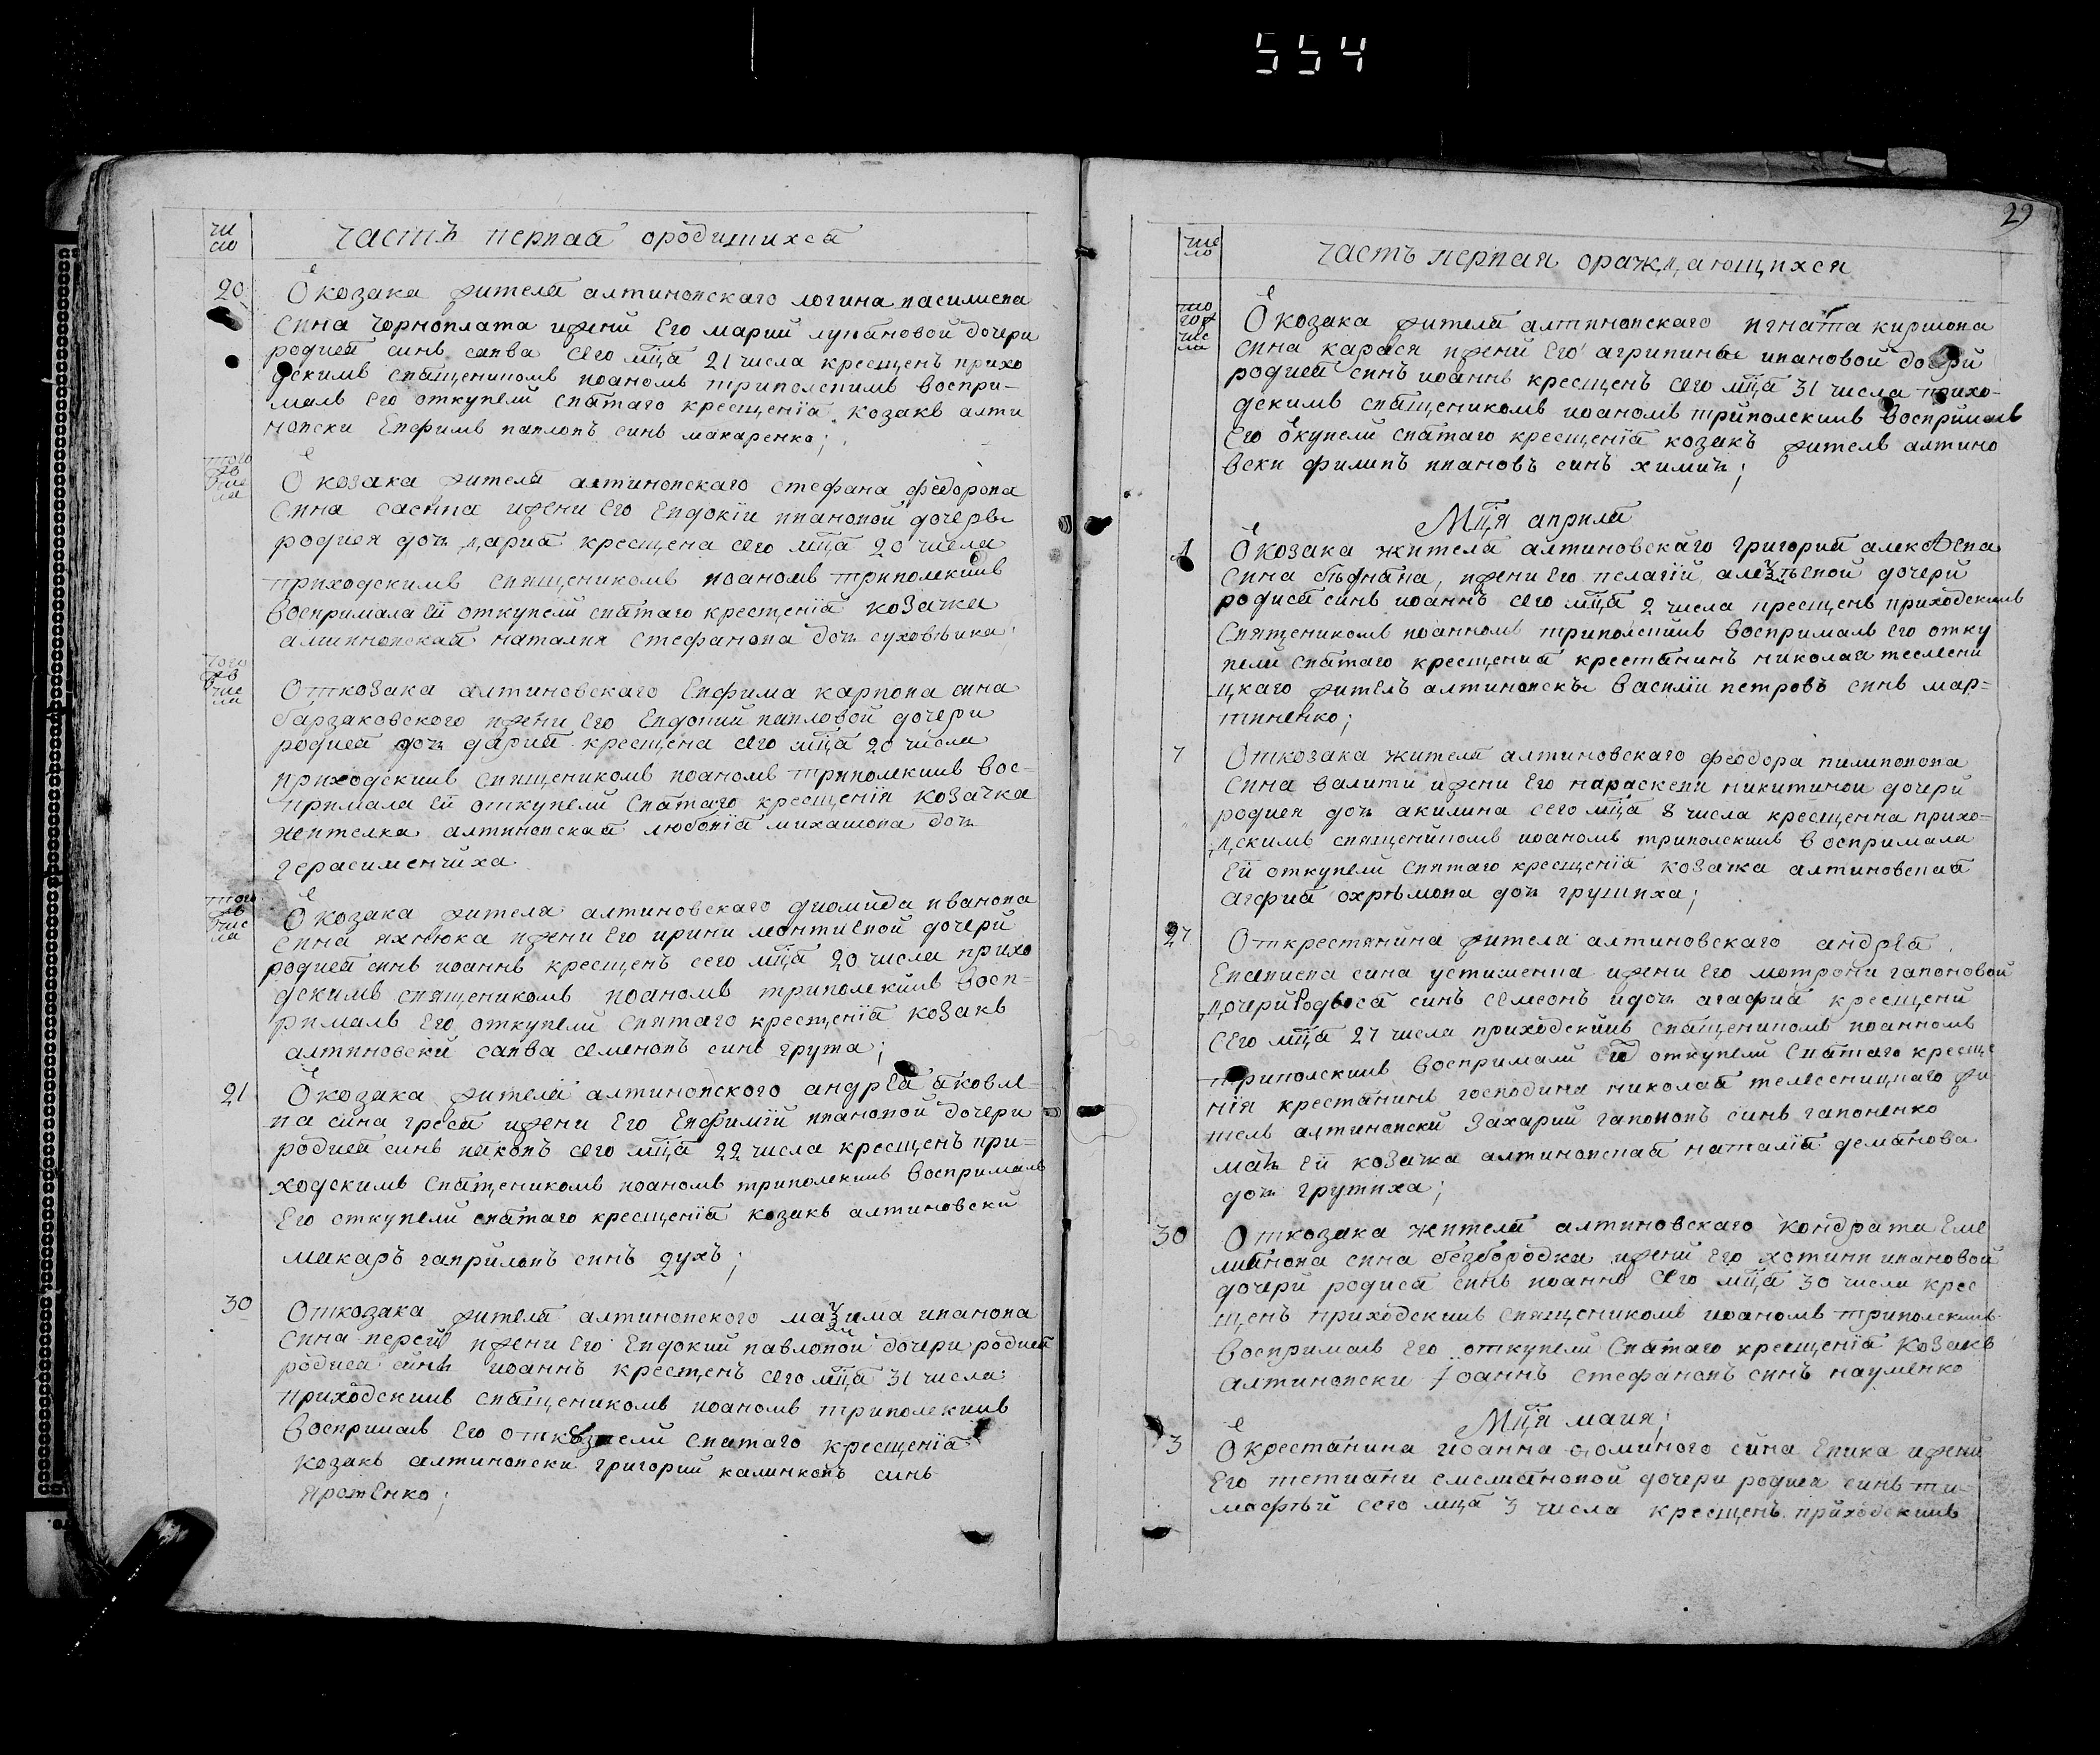 554
29
число
часть первая ородившихся
20
Ѿ козака жителя алтиновскаго логина василиева
сина чорноплата ижени Его марии лукяновой дочери
родися синъ савва сего мца 21 числа крещенъ прихо
дскимъ священикомъ иоаномъ триполскимъ воспри-
малъ Его откупели святаго крещенїя козакъ алти
новски Евфимъ павловъ синъ макаренко;
того жъ числа
Ѿ козака жителя алтиновскаго стефана федорова
сина саенка ижени Его Евдокїи ивановой дочери
родися дочъ дария крещена сего мца 20 числа
приходскимъ священикомъ иоаномъ триполскимъ
воспримала Еї откупели святаго крещенїя козачка
алтиновская наталия стефанова дочъ
того жъ числа
Откозака алтиновскаго Евфима карпова сина
барзаковского ижени Его Евдокии павловой дочери
родися дочъ дария крещена сего мца 20 числа
приходскимъ священикомъ иоаномъ триполскимъ вос-
примала Еї откупели святаго крещенїя козачка
жителка алтиновская любовїя михаилова дочъ
герасименчиха
того жъ числа
Ѿ козака жителя алтиновскаго диомида иванова
сина яхнюка ижени Его ирини леонтиевой дочери
родися синъ иоаннъ крещенъ сего мца 20 числа прихо
дскимъ священикомъ иоаномъ триполскимъ восп-
рималъ Его откупели святаго крещенїя козакъ
алтиновски савва семеновъ синъ грута;
21
Ѿ козака жителя алтиновского андрея яковле-
ва сина греся ижени Его Евфимїи ивановой дочери
родися синъ яковъ сего мца 22 числа крещенъ при-
ходскимъ священикомъ иоаномъ триполскимъ воспрималъ
Его откупели святаго крещенїя козакъ алтиновски
макаръ гавриловъ синъ духъ;
30
Откозака жителя алтиновского маѯима иванова
сина ижени Его Евдокии павловой дочери родися
родися синъ иоаннъ крещенъ сего мца 31 числа
приходскимъ священикомъ иоаномъ триполскимъ
воспрималъ Его откупели святаго крещенїя
козакъ алтиновски григорий калинковъ синъ
яременко;
число
часть первая ораждающихся
того ж числа
Ѿ козака жителя алтиновскаго игната кирилова
сина карася ижени Его агрипини ивановой дочери
родися синъ иоаннъ крещенъ сего мца 31 числа прихо-
дскимъ священикомъ иоаномъ триполскимъ воспрималъ
Его ѿкупели святаго крещенїя козакъ житель алтино
вски филипъ ивановъ синъ химич;
Мця априля
1
Ѿ козака жителя алтиновскаго григория алексѣева
сина ижени Его пелагїи алеѯѣевой дочери
родися синъ иоаннъ сего мца 2 числа крещенъ приходскимъ
священикомъ иоанномъ триполскимъ воспрималъ Его отку
пели святаго крещения крестянинъ николая теслени
цкаго жителъ алтиновскъ василїи петровъ синъ мар-
тиненко;
7
Откозака жителя алтиновскаго феодора пилипова
сина валити ижени Его параскеви никитиной дочери
родися дочъ акилина сего мца 8 числа крещенна прихо-
дскимъ священикомъ иоаномъ триполскимъ воспримала
Еї откупели святаго крещенїя козачка алтиновская
агафия охрѣмова дочъ грушиха;
27
Открестянина жителя алтиновскаго андрея
Евсевиева сина устименка ижени Его мотрони гапоновой
дочери родися синъ семеонъ идочъ агафия крещени
сего мца 27 числа приходскимъ священикомъ иоанномъ
триполскимъ воспримали откупели святаго креще
нїя крестянинъ господина николая телесницкаго жи
тель алтиновски захарий гапоновъ синъ гапоненко
мать Еї козачка алтиновская наталїя демянова
дочъ грутиха;
30
Откозака жителя алтиновскаго кондрата Еме
лиянова сина безбородка ижени Его хотини ивановой
дочери родися синъ иоаннъ сего мца 30 числа крес
щенъ приходскимъ священикомъ иоаномъ триполскимъ
воспрималъ Его откупели святаго крещенїя козакъ
алтиновски Іоаннъ стефановъ синъ науменко
Мця маия;
3
Ѿ крестянина иоанна сина Евика ижени
Его тетияни емелиановой дочери родися синъ ти-
мофѣй сего мца 3 числа крещенъ приходскимъ